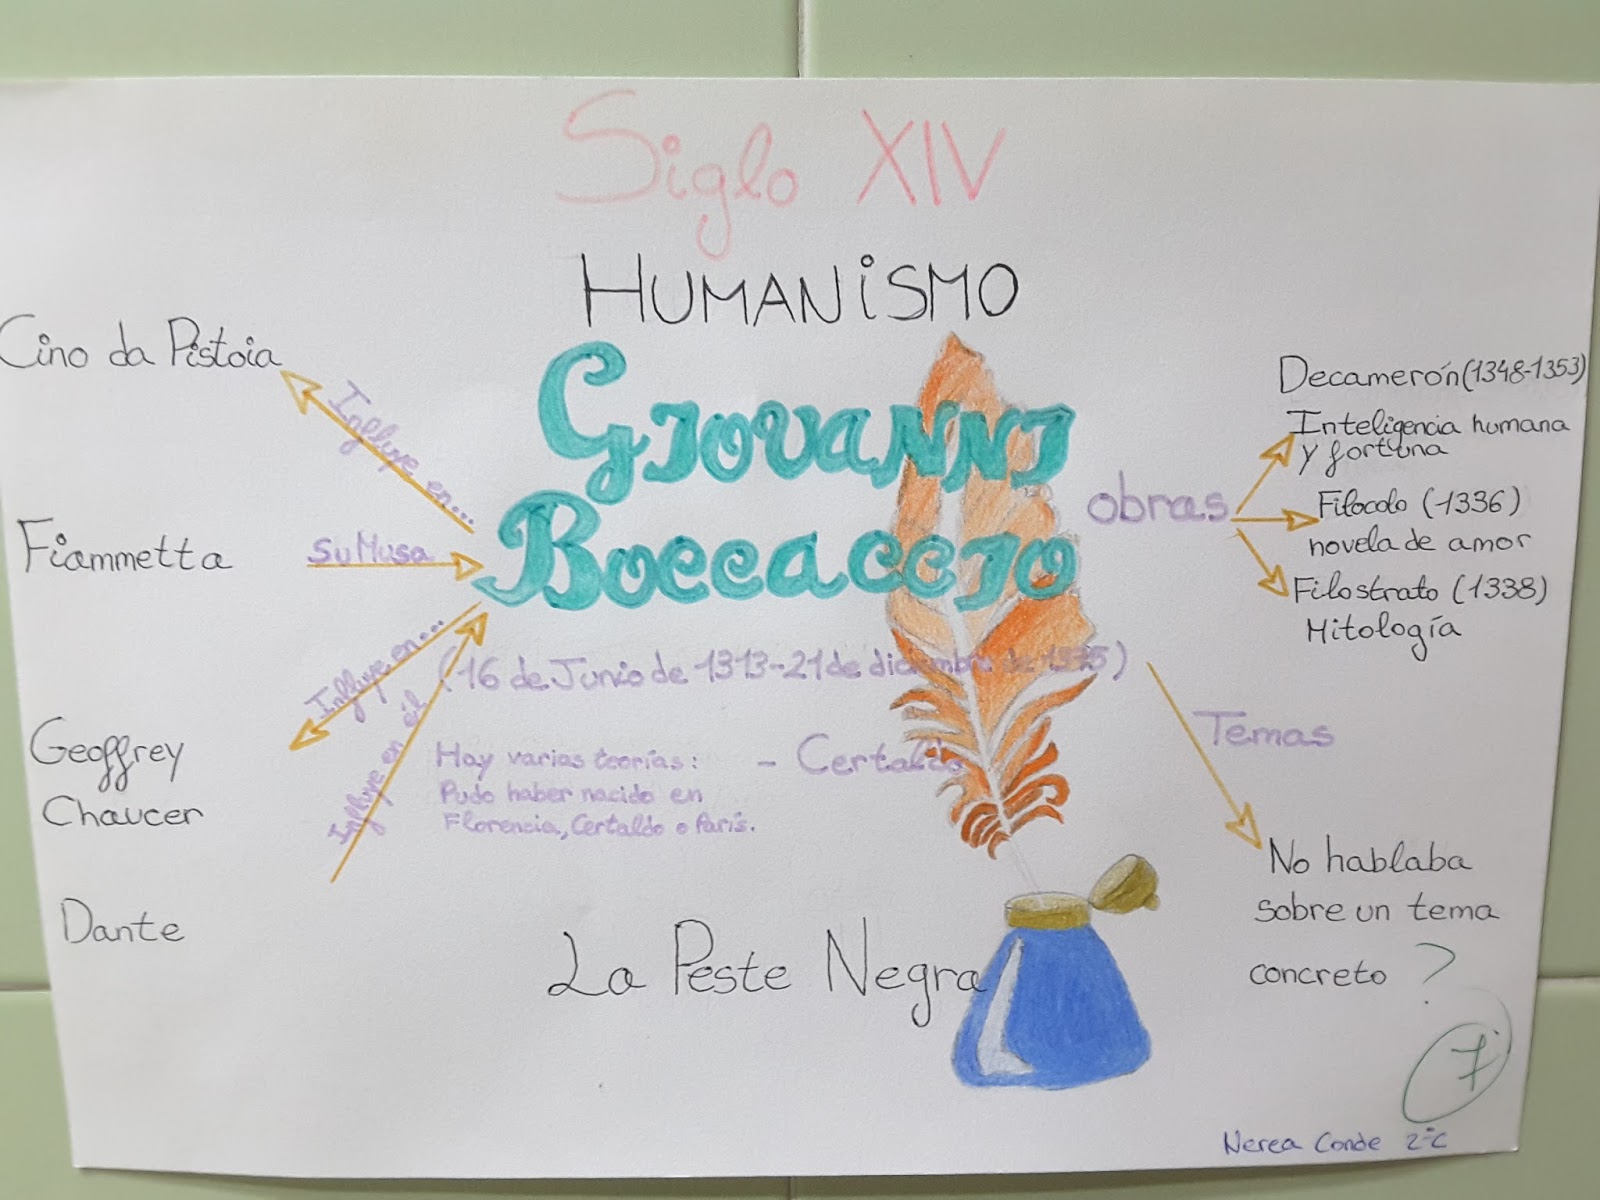 Siglo XIV
HUMANiSMO
GIOVANNI
BOCCACCIO
(16 de Junio de 1313-21 de diciembre de 1375)
Hay varias teorías:
Pudo haber nacido en
Florencia, Certaldo o París.
- Certaldo
La Peste Negra
Cino da Pistoia
Influye en...
Fiammetta
Su Musa
Influye en...
Geoffrey
Chaucer
Influye en él
Dante
obras
Decamerón (1348-1353)
Inteligencia humana
y fortuna
Filocolo (1336)
novela de amor
Filostrato (1338)
Mitología
Temas
No hablaba
sobre un tema
concreto ?
7
Nerea Conde 2ºC